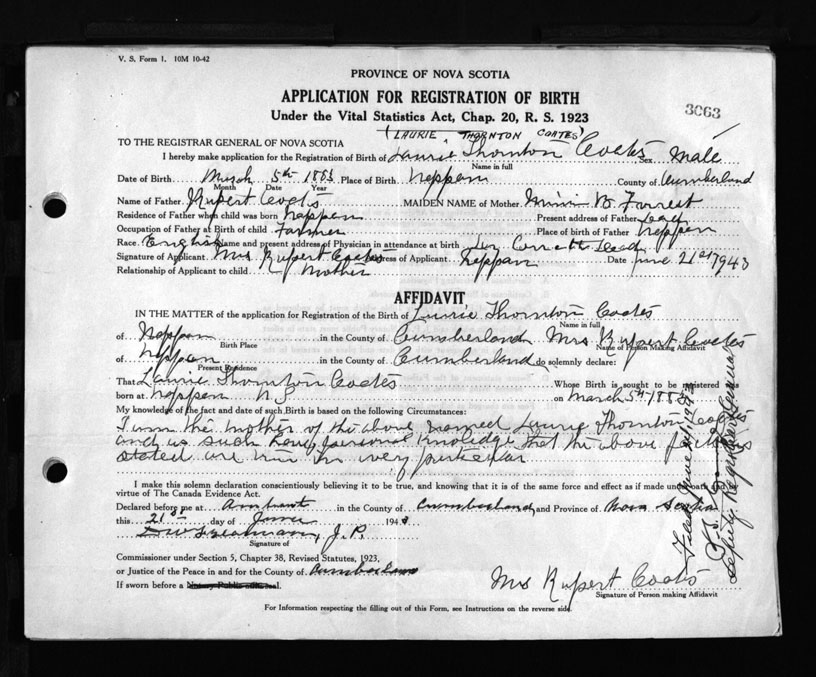 V. S. Form 1. 10M 10-42
PROVINCE OF NOVA SCOTIA
APPLICATION FOR REGISTRATION OF BIRTH
3063
Under the Vital Statistics Act, Chap. 20, R. S. 1923
(LAURIE THORNTON COATES)
TO THE REGISTRAR GENERAL OF NOVA SCOTIA
I hereby make application for the Registration of Birth of Laurie Thornton Coates Sex Male
Name in full
Date of Birth March 5th 1883 Place of Birth Nappan County of Cumberland
Month Date Year
Name of Father Rupert Coates MAIDEN NAME of Mother B. Forrest
Residence of Father when child was born Nappan Present address of Father
Occupation of Father at Birth of child Farmer Place of birth of Father Nappan
Race English Name and present address of Physician in attendance at birth Dead
Signature of Applicant Mrs Rupert Coates Address of Applicant Nappan Date June 21st 1943
Relationship of Applicant to child Mother
AFFIDAVIT
IN THE MATTER of the application for Registration of the Birth of Laurie Thornton Coates
Name in full
of Nappan in the County of Cumberland Mrs Rupert Coates
Birth Place Name of Person Making Affidavit
of Nappan in the County of Cumberland do solemnly declare:
Present Residence
That Laurie Thornton Coates Whose Birth is sought to be registered was
born at Nappan N S on March 5th 1883
My knowledge of the fact and date of such Birth is based on the following Circumstances:
I am the mother of the above named Laurie Thornton Coates
and as such have personal knowledge that the above facts as
stated are true in every particular
I make this solemn declaration conscientiously believing it to be true, and knowing that it is of the same force and effect as if made under oath and
virtue of The Canada Evidence Act.
Declared before me at Amherst in the County of Cumberland, and Province of Nova Scotia
this 21st day of June 1943
J. P.
Signature of
Commissioner under Section 5, Chapter 38, Revised Statutes, 1923,
or Justice of the Peace in and for the County of Cumberland
If sworn before a Notary Public affix seal.
Mrs Rupert Coates
Signature of Person making Affidavit
For Information respecting the filling out of this Form, see Instructions on the reverse side.
Filed June 1943
Deputy Registrar General